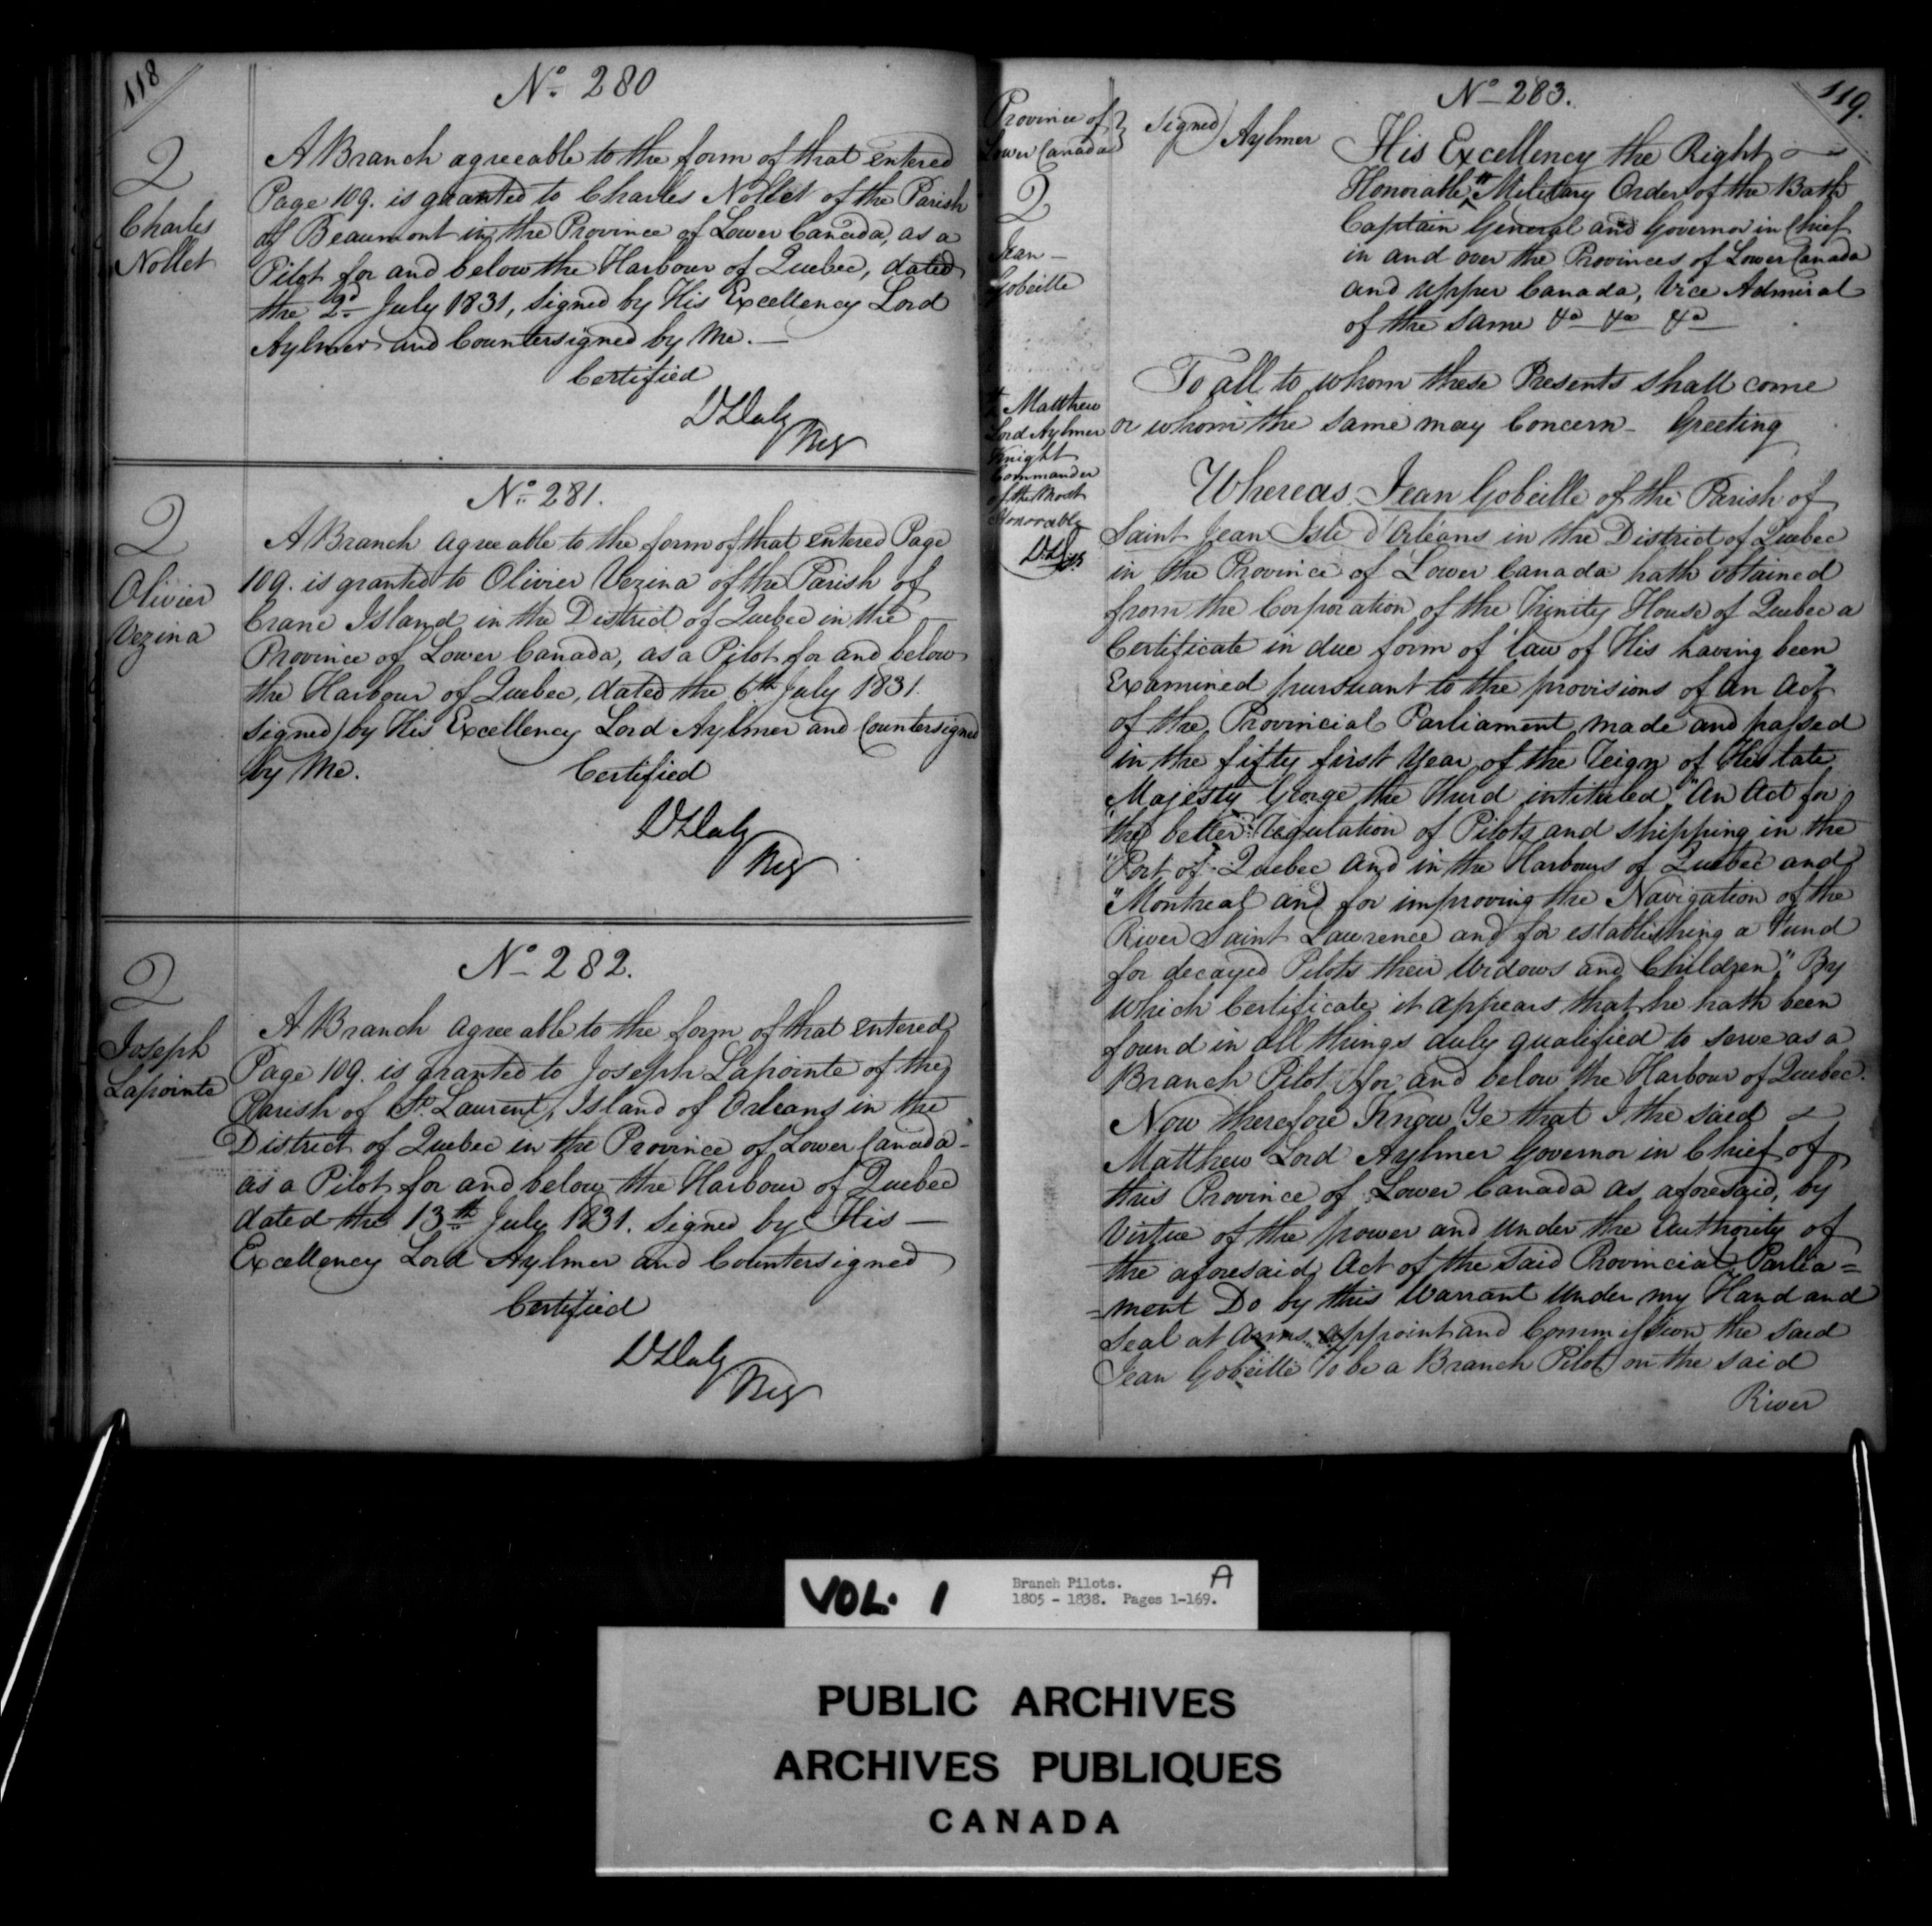 118
No. 280
2
Charles
Nollet
A Branch agreeable to the form of that entered
Page 109. is granted to Charles Nollet of the Parish
of Beaumont in the Province of Lower Canada, as a
Pilot for and below the Harbour of Quebec, dated
the 2d July 1831, signed by His Excellency Lord
Aylmer and Countersigned by Me. —
Certified
D Daly
Reg
No. 281.
2
Olivier
Vezina
A Branch agreeable to the form of that entered Page
109. is granted to Olivier Vezina of the Parish of
Crane Island in the District of Quebec in the —
Province of Lower Canada, as a Pilot for and below
the Harbour of Quebec, dated the 6th July 1831.
signed by His Excellency Lord Aylmer and Countersigned
by Me.
Certified
D Daly
Reg
No. 282.
2
Joseph
Lapointe
A Branch agreeable to the form of that entered
Page 109. is granted to Joseph Lapointe of the
Parish of St. Laurent, Island of Orleans in the
District of Quebec in the Province of Lower Canada -
as a Pilot for and below the Harbour of Quebec
dated the 13th July 1831. signed by His —
Excellency Lord Aylmer and Countersigned
Certified
D Daly
Reg
119.
No. 283.
Province of }
Lower Canada }
signed) Aylmer
2
Jean —
Gobeille
His Excellency the Right
Honorable Military Order of the Bath
Captain General and Governor in Chief
in and over the Provinces of Lower Canada
and Upper Canada, Vice Admiral
of the same &a &a &a
Matthew
Lord Aylmer
Knight
Commander
of the Most
Honorable
D D
To all to whom these Presents shall come
or whom the same may Concern - Greeting
Whereas Jean Gobeille of the Parish of
Saint Jean Isle d'Orléans in the District of Quebec
in the Province of Lower Canada hath obtained
from the Corporation of the Trinity House of Quebec a
Certificate in due form of law of His having been
Examined pursuant to the provisions of an Act
of the Provincial Parliament made and passed
in the fifty first Year of the Reign of His late
Majesty George the Third intituled "An Act for
the better regulation of Pilots and shipping in the
"Port of Quebec and in the Harbours of Quebec and
"Montreal and for improving the Navigation of the
River Saint Lawrence and for establishing a Fund
for decayed Pilots their Widows and Children," By
which Certificate it appears that he hath been
found in all things duly qualified to serve as a
Branch Pilot for and below the Harbour of Quebec.
Now therefore Know Ye that I the said
Matthew Lord Aylmer Governor in Chief of
this Province of Lower Canada as aforesaid, by
Virtue of the power and under the Authority of
the aforesaid Act of the said Provincial Parlia=
=ment Do by this Warrant under my Hand and
Seal at Arms appoint and Commission the said
Jean Gobeille to be a Branch Pilot on the said
River
VOL. 1
Branch Pilots.
1805 - 1838. Pages 1-169.
A
PUBLIC ARCHIVES
ARCHIVES PUBLIQUES
CANADA